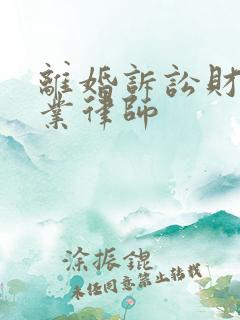 離婚訴訟財
業律師
涂振錕
未经同意禁止转载